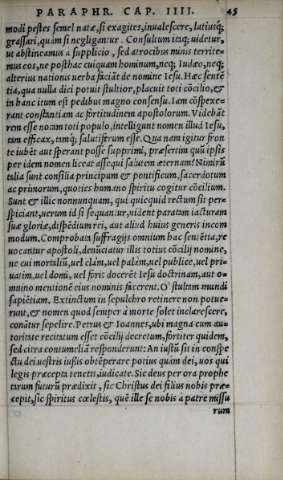 PARAPHR. CAP. IIII. 45
modi pestes semel natæ, si exagites, inualescere, latiusq́;
grassari, quàm si negligantur. Consultum itaq; uidetur,
ut abstineamus à supplicio, sed atrocibus minis territe-
mus eos, ne posthac cuiquam hominum, neq; Iudæo, neq;
alterius nationis uerba faciãt de nomine Iesu. Hæc sentẽ
tia, qua nulla dici potuit stultior, placuit toti cõcilio, &
in hanc itum est pedibus magno consensu. Iam cõspexe-
rant constantiam ac fortitudinem apostolorum. Videbãt
rem esse notam toti populo, intelligunt nomen illud Iesu,
tam efficax, tamq́; salutiferum esse. Qua nam igitur fron
te iubẽt aut sperant posse supprimi, præsertim quũ ipsis
per idem nomen liceat assequi salutem æternam? Nimirũ
talia sunt consilia principum & pontificum, sacerdotum
ac primorum, quoties humano spiritu cogitur cõcilium.
Sunt & illic nonnunquam, qui quicquid rectum sit per-
spiciant, uerum id si sequantur, uident paratam iacturam
suæ gloriæ, dispẽdium rei, aut aliud huius generis incom
modum. Comprobata suffragijs omnium hac senẽtia, re
uocantur apostoli, denũciatur illis totius cõcilij nomine,
ne cui mortaliũ, uel clàm, uel palàm, uel publice, uel pri-
uatim, uel domi, uel foris docerẽt Iesu doctrinam, aut o-
mnino mentionẽ eius nominis facerent. O stultam mundi
sapiẽtiam. Extinctum in sepulchro retinere non potue-
runt, & nomen quod semper à morte solet inclarescere,
conãtur sepelire. Petrus & Ioannes, ubi magna cum au-
toritate recitatum esset cõcilij decretum, fortiter quidem,
sed citra contumeliã responderunt: An iustũ sit in conspe
ctu dei nostris iussis obtẽperare potius quàm dei, uos qui
legis præcepta tenetis, iudicate. Sic deus per ora prophe
tarum futurũ prædixit, sic Christus dei filius nobis præ-
cepit, sic spiritus cœlestis, quẽ ille se nobis à patre missu
rum